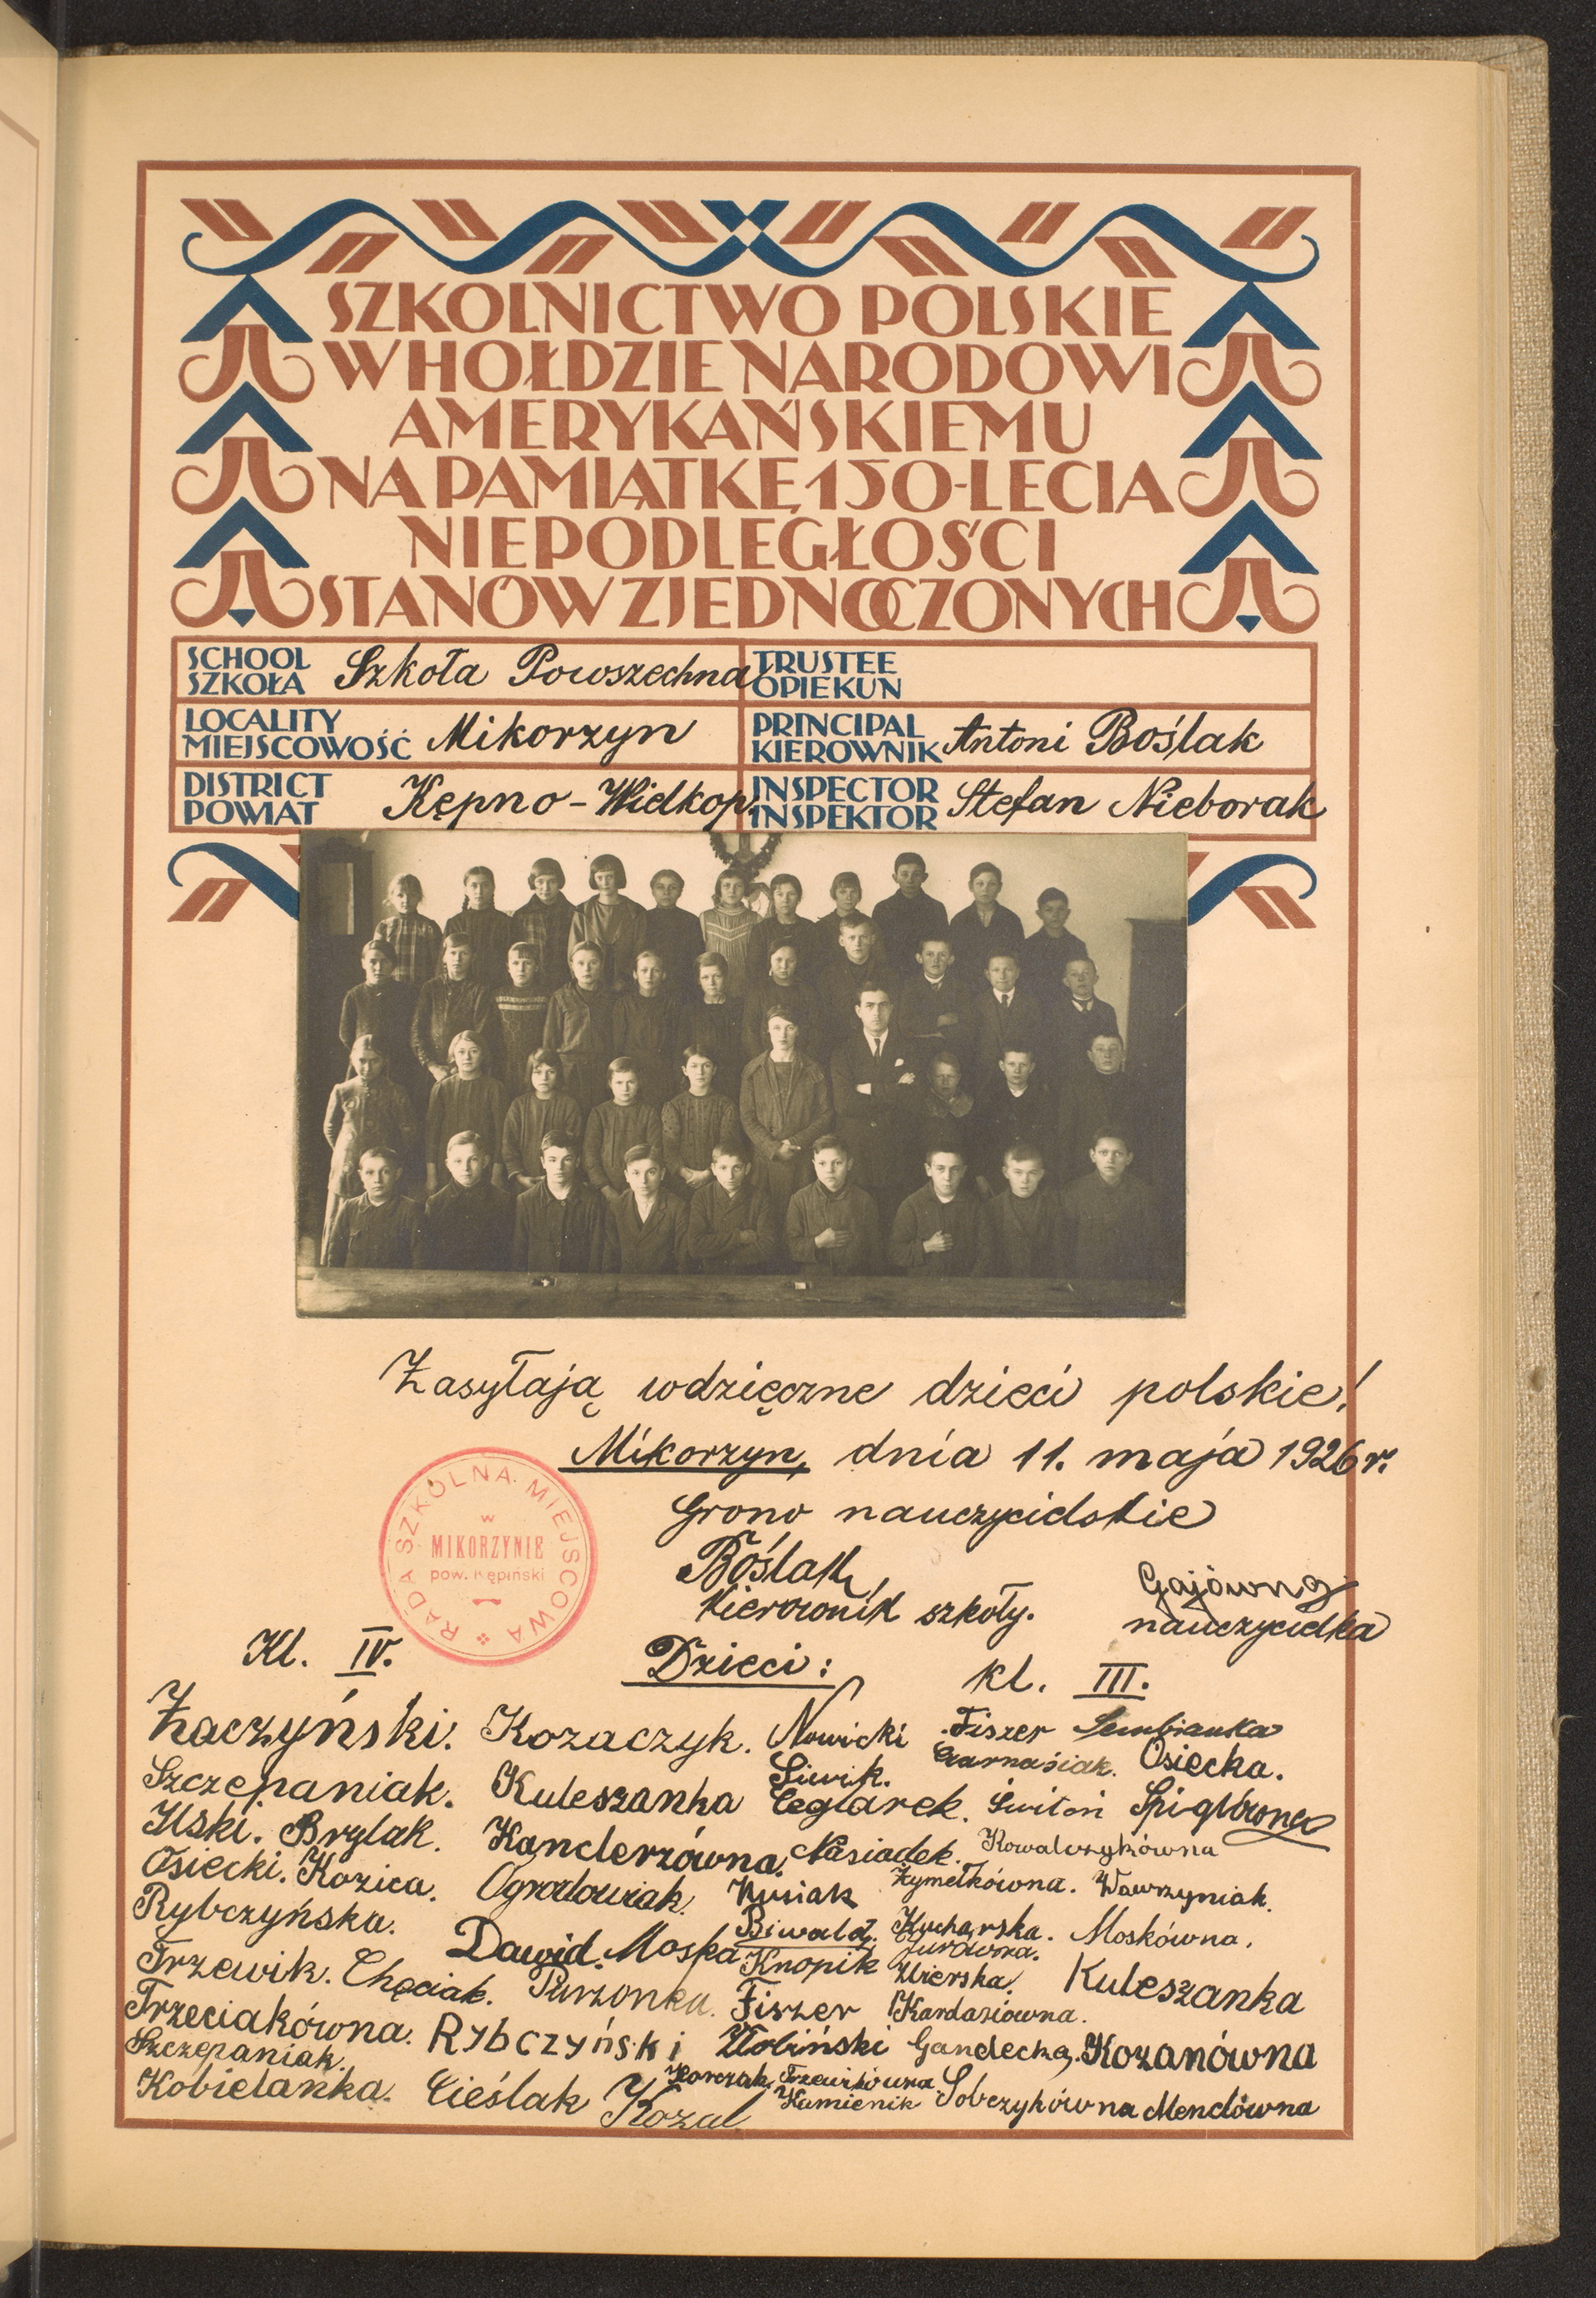 SZKOLNICTWO POLSKIE
W HOŁDZIE NARODOWI
AMERYKAŃSKIEMU
NA PAMIĄTKĘ 150-LECIA
NIEPODLEGŁOŚCI
STANÓW ZJEDNOCZONYCH
SCHOOL
SZKOŁA Szkoła Powszechna
TRUSTEE
OPIEKUN
LOCALITY
MIEJSCOWOŚĆ Mikorzyn
PRINCIPAL
KIEROWNIK Antoni Boślak
DISTRICT
POWIAT Kępno-Wielkop.
INSPECTOR
INSPEKTOR Stefan Nieborak
Zasyłają wdzięczne dzieci polskie!
Mikorzyn, dnia 11. maja 1926 r.
Grono nauczycielskie
RADA SZKOLNA MIEJSCOWA
w
MIKORZYNIE
pow. Kępiński
Boślak,
kierownik szkoły.
Gajówna
nauczycielka
Kl. IV.
Dzieci:
kl. III.
Żaczyński. Kozaczyk. Nowicki Fiszer Sembianka
Siwik. Czarnasiak. Osiecka.
Szczepaniak. Kuleszanka Ceglarek. Świtoń Spiglówna
Ilski. Brylak. Kanclerzówna. Nasiadek. Kowalczykówna
Osiecki. Kozica. Ogrodowiak. Kusiak Zymełkówna. Wawrzyniak.
Rybczyńska. Dawid. Moska Biwald. Kucharska. Moskówna.
Knopik Jurówna.
Trzewik. Chęciak. Purzonka. Fiszer Uierska. Kuleszanka
Kardasiówna.
Trzeciakówna. Rybczyński Złobiński Gandecka. Kozanówna
Szczepaniak. Korczak. Trzewikówna.
Kobielanka. Cieślak Kozal Kamienik Sobczykówna Menclówna